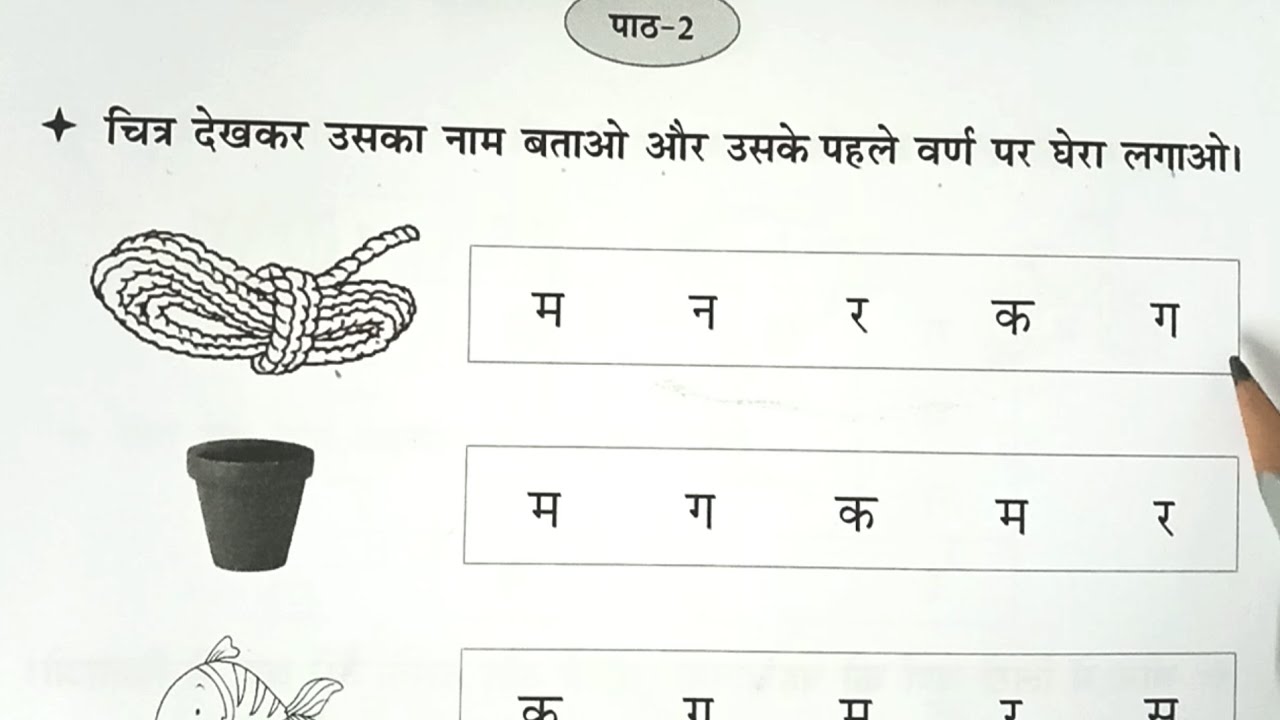 पाठ-2
चित्र देखकर उसका नाम बताओ और उसके पहले वर्ण पर घेरा लगाओ।
म न र क ग
म ग क म र
क ग म र म